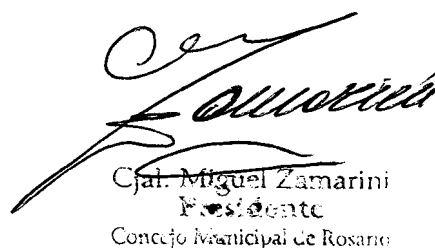 Zamarini
Cjal. Miguel Zamarini
Presidente
Concejo Municipal de Rosario